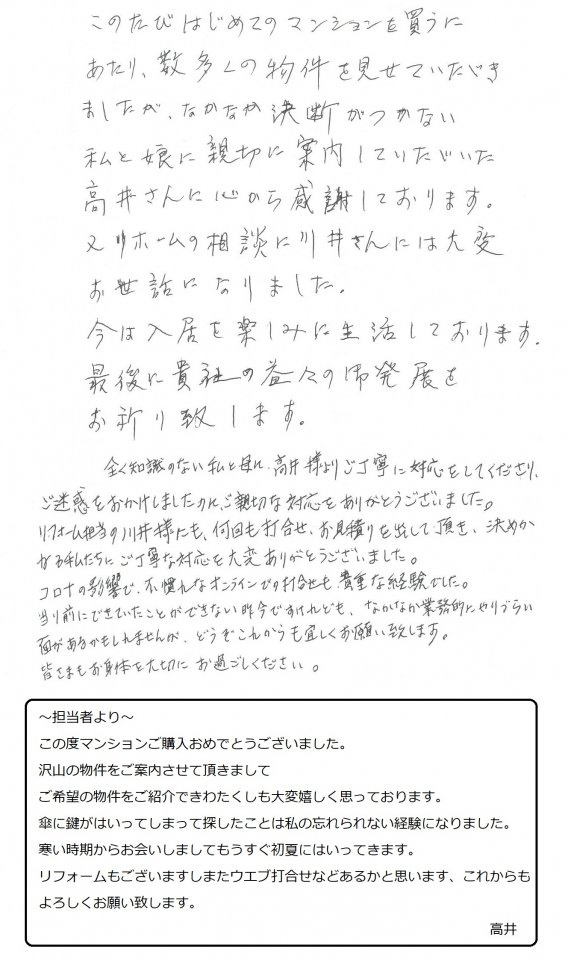 このたびはじめてのマンションを買うに
あたり、数多くの物件を見せていただき
ましたが、なかなか決断がつかない
私と娘に親切に案内していただいた
高井さんに心から感謝しております。
又リホームの相談に川井さんには大変
お世話になりました。
今は入居を楽しみに生活しております。
最後に貴社の益々の御発展を
お祈り致します。
全く知識のない私と母に、高井様よりご丁寧に対応をしてくださり、
ご迷惑をおかけしましたのに、ご親切な対応をありがとうございました。
リフォーム担当の川井様にも、何回も打合せ、お見積りを出して頂き、決めか
ねる私たちにご丁寧な対応を大変ありがとうございました。
コロナの影響で、不慣れなオンラインでの打合せも、貴重な経験でした。
当り前にできていたことができない昨今ですけれども、なかなか業務的にやりづらい
面があるかもしれませんが、どうぞこれからも宜しくお願い致します。
皆さまもお身体を大切にお過ごしください。
～担当者より～
この度マンションご購入おめでとうございました。
沢山の物件をご案内させて頂きまして
ご希望の物件をご紹介できわたくしも大変嬉しく思っております。
傘に鍵がはいってしまって探したことは私の忘れられない経験になりました。
寒い時期からお会いしましてもうすぐ初夏にはいってきます。
リフォームもございますしまたウエブ打合せなどあるかと思います、これからも
よろしくお願い致します。
高井